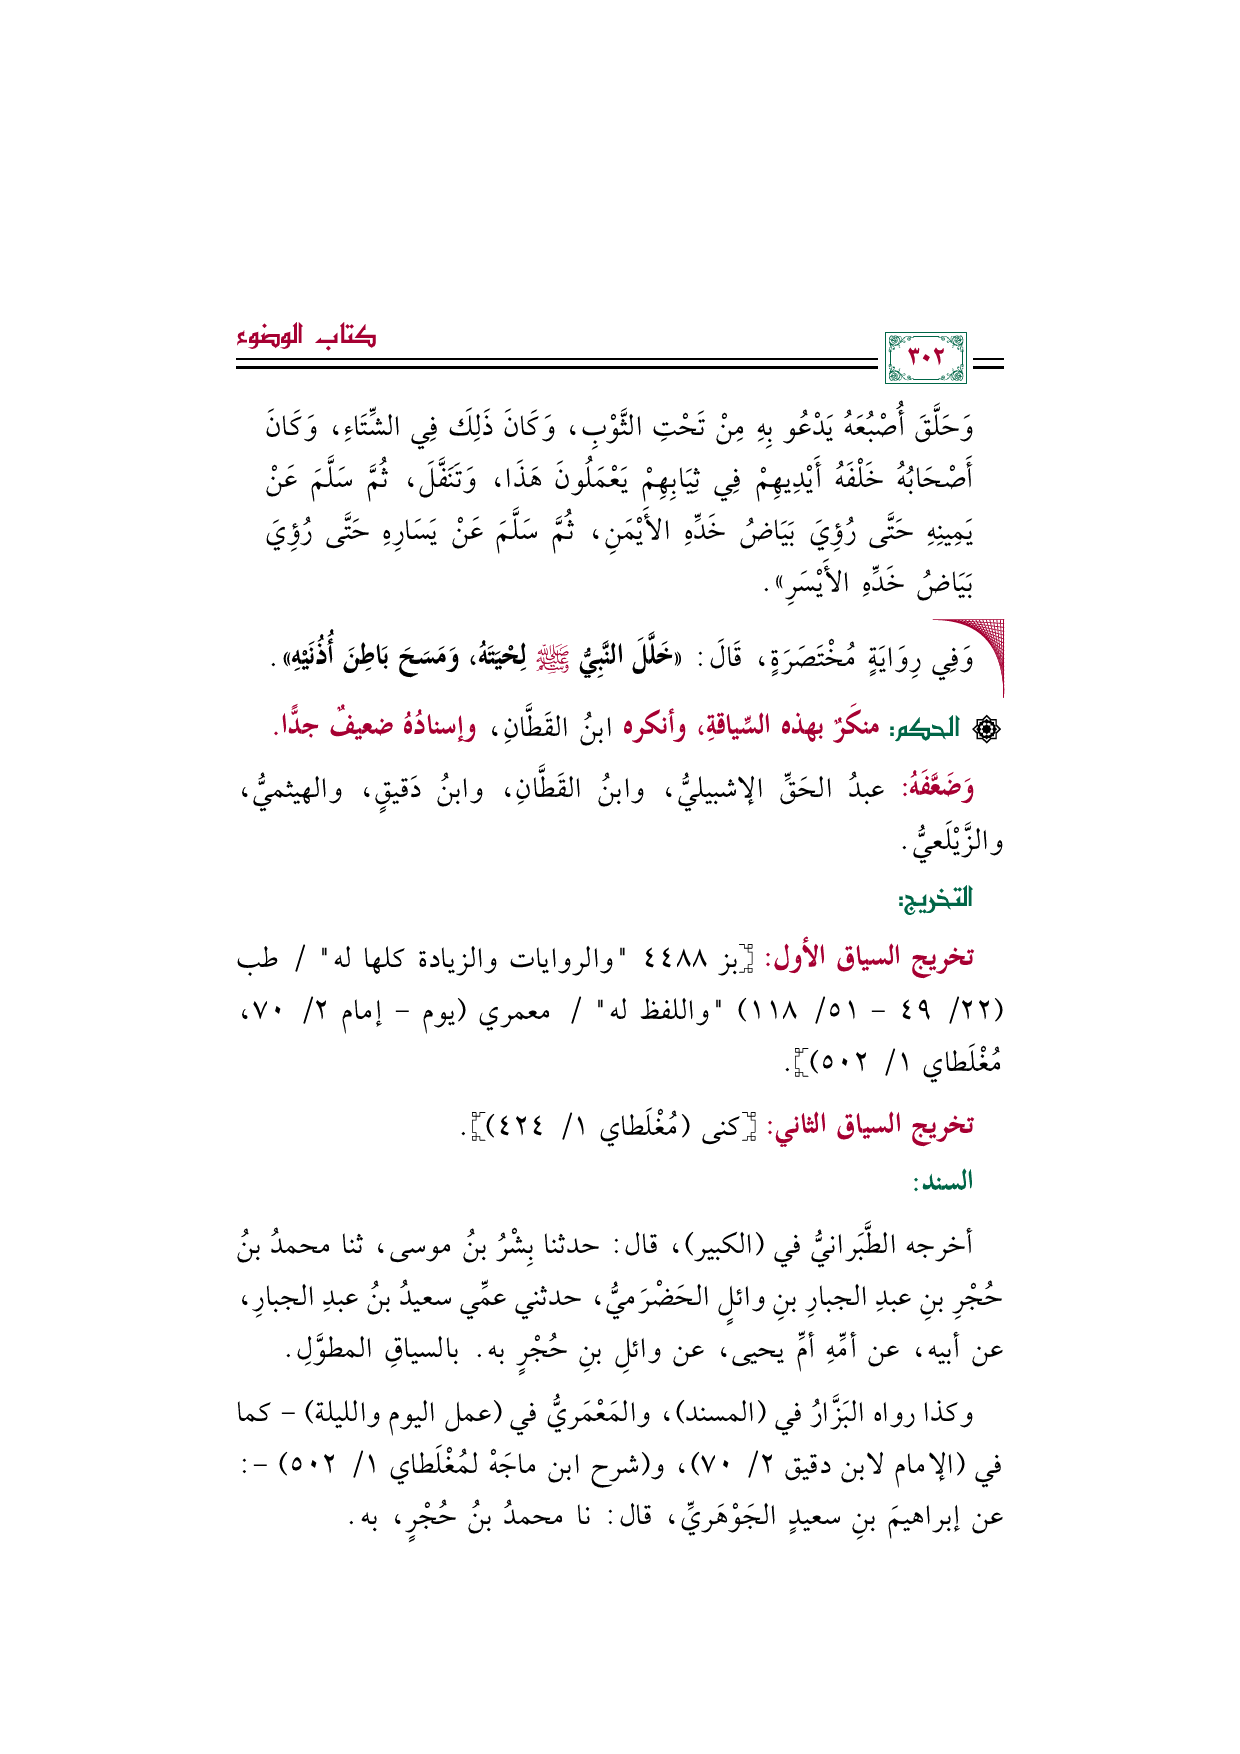 كتاب الوضوء
٣٠٢
وَحَلَّقَ أُصْبُعَهُ يَدْعُو بِهِ مِنْ تَحْتِ الثَّوْبِ، وَكَانَ ذَلِكَ فِي الشِّتَاءِ، وَكَانَ
أَصْحَابُهُ خَلْفَهُ أَيْدِيهِمْ فِي ثِيَابِهِمْ يَعْمَلُونَ هَذَا، وَتَنَفَّلَ، ثُمَّ سَلَّمَ عَنْ
يَمِينِهِ حَتَّى رُؤِيَ بَيَاضُ خَدِّهِ الأَيْمَنِ، ثُمَّ سَلَّمَ عَنْ يَسَارِهِ حَتَّى رُؤِيَ
بَيَاضُ خَدِّهِ الأَيْسَرِ».
وَفِي رِوَايَةٍ مُخْتَصَرَةٍ، قَالَ: «خَلَّلَ النَّبِيُّ ﷺ لِحْيَتَهُ، وَمَسَحَ بَاطِنَ أُذُنَيْهِ».
الحكم: منكَرٌ بهذه السِّياقةِ، وأنكره ابنُ القَطَّانِ، وإسنادُهُ ضعيفٌ جدًّا.
وَضَعَّفَهُ: عبدُ الحَقِّ الإشبيليُّ، وابنُ القَطَّانِ، وابنُ دَقيقٍ، والهيثميُّ،
والزَّيْلَعيُّ.
التخريج:
تخريج السياق الأول: [بز ٤٤٨٨ "والروايات والزيادة كلها له" / طب
(٢٢/ ٤٩ - ٥١/ ١١٨) "واللفظ له" / معمري (يوم - إمام ٢/ ٧٠،
مُغْلَطاي ١/ ٥٠٢)].
تخريج السياق الثاني: [كنى (مُغْلَطاي ١/ ٤٢٤)].
السند:
أخرجه الطَّبَرانيُّ في (الكبير)، قال: حدثنا بِشْرُ بنُ موسى، ثنا محمدُ بنُ
حُجْرِ بنِ عبدِ الجبارِ بنِ وائلٍ الحَضْرَميُّ، حدثني عمِّي سعيدُ بنُ عبدِ الجبارِ،
عن أبيه، عن أمِّهِ أمِّ يحيى، عن وائلِ بنِ حُجْرٍ به. بالسياقِ المطوَّلِ.
وكذا رواه البَزَّارُ في (المسند)، والمَعْمَريُّ في (عمل اليوم والليلة) - كما
في (الإمام لابن دقيق ٢/ ٧٠)، و(شرح ابن ماجَهْ لمُغْلَطاي ١/ ٥٠٢) -:
عن إبراهيمَ بنِ سعيدٍ الجَوْهَريِّ، قال: نا محمدُ بنُ حُجْرٍ، به.